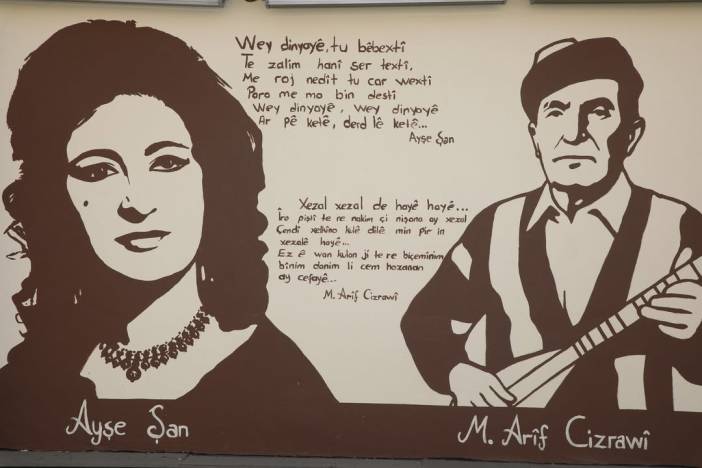 Wey dinyayê, tu bêbextî
Te zalim hanî ser textî,
Me roj nedît tu car wextî
Para me ma bin destî
Wey dinyayê, wey dinyayê
Ar pê ketê, derd lê ketê...
Ayşe Şan
Xezal xezal de hayê hayê...
Îro piştî te re nakim çi nîşana ay xezal
Çendî xelkîno kulê dilê min pir in
xezalê hayê...
Ez ê wan kulan jî te re biçemînim
bînim danim li cem hozanan
ay cefayê...
M. Arîf Cizrawî
Ayşe Şan
M. Arîf Cizrawî